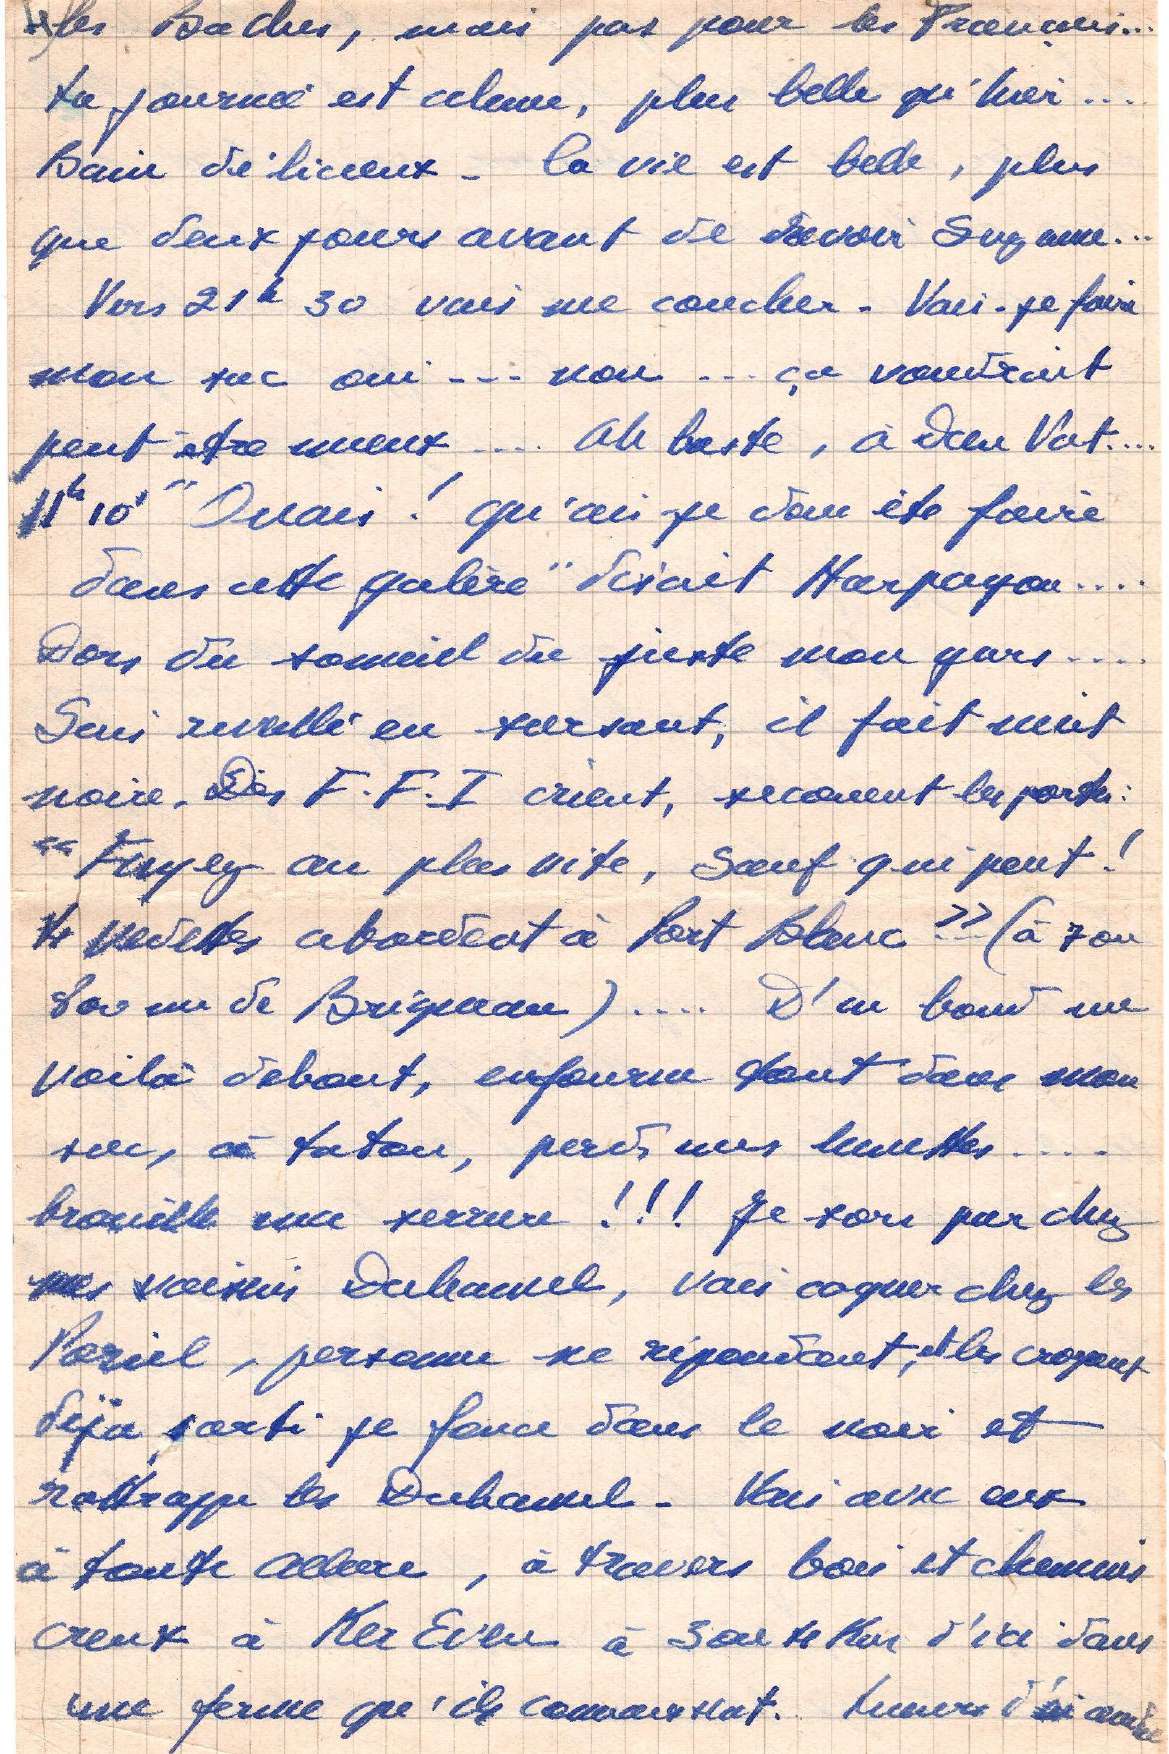 les Boches, mais pas pour les Français...
La journée est calme, plus belle qu'hier ....
Bain délicieux - la vie est belle, plus
que deux jours avant de revoir Suzanne...
Vers 21h 30 vais me coucher - Vais-je faire
mon sac oui --- non --- ça vaudrait
peut être mieux .... Ah baste, à Dieu Vat....
11h 10' " Ouais ! qu'ai-je donc été faire
dans cette galère" disait Harpagon....
Dors du sommeil du juste mon gars....
Suis reveillé en sursaut, il fait nuit
noire. Des F.F.I crient, secouent les portes:
"Fuyez au plus vite, Sauf qui peut !
14 vedettes abordent à Port Blanc" (à 7 ou
800 m de Brigneau) .... D'un bond me
voilà debout, enfourne tout dans mon
sac, à taton, perds mes lunettes ....
brouille ma serrure !!! Je sors par chez
mes voisins Duhamel, vais cogner chez les
Poriel, personne ne répondant, et les croyant
déja sorti je fonce dans le noir et
rattrappe les Duhamel - Vais avec eux
à toute allure, à travers bois et chemins
creux à Ker Even à 3 ou 4 Km d'ici dans
une ferme qu'ils connaissent.